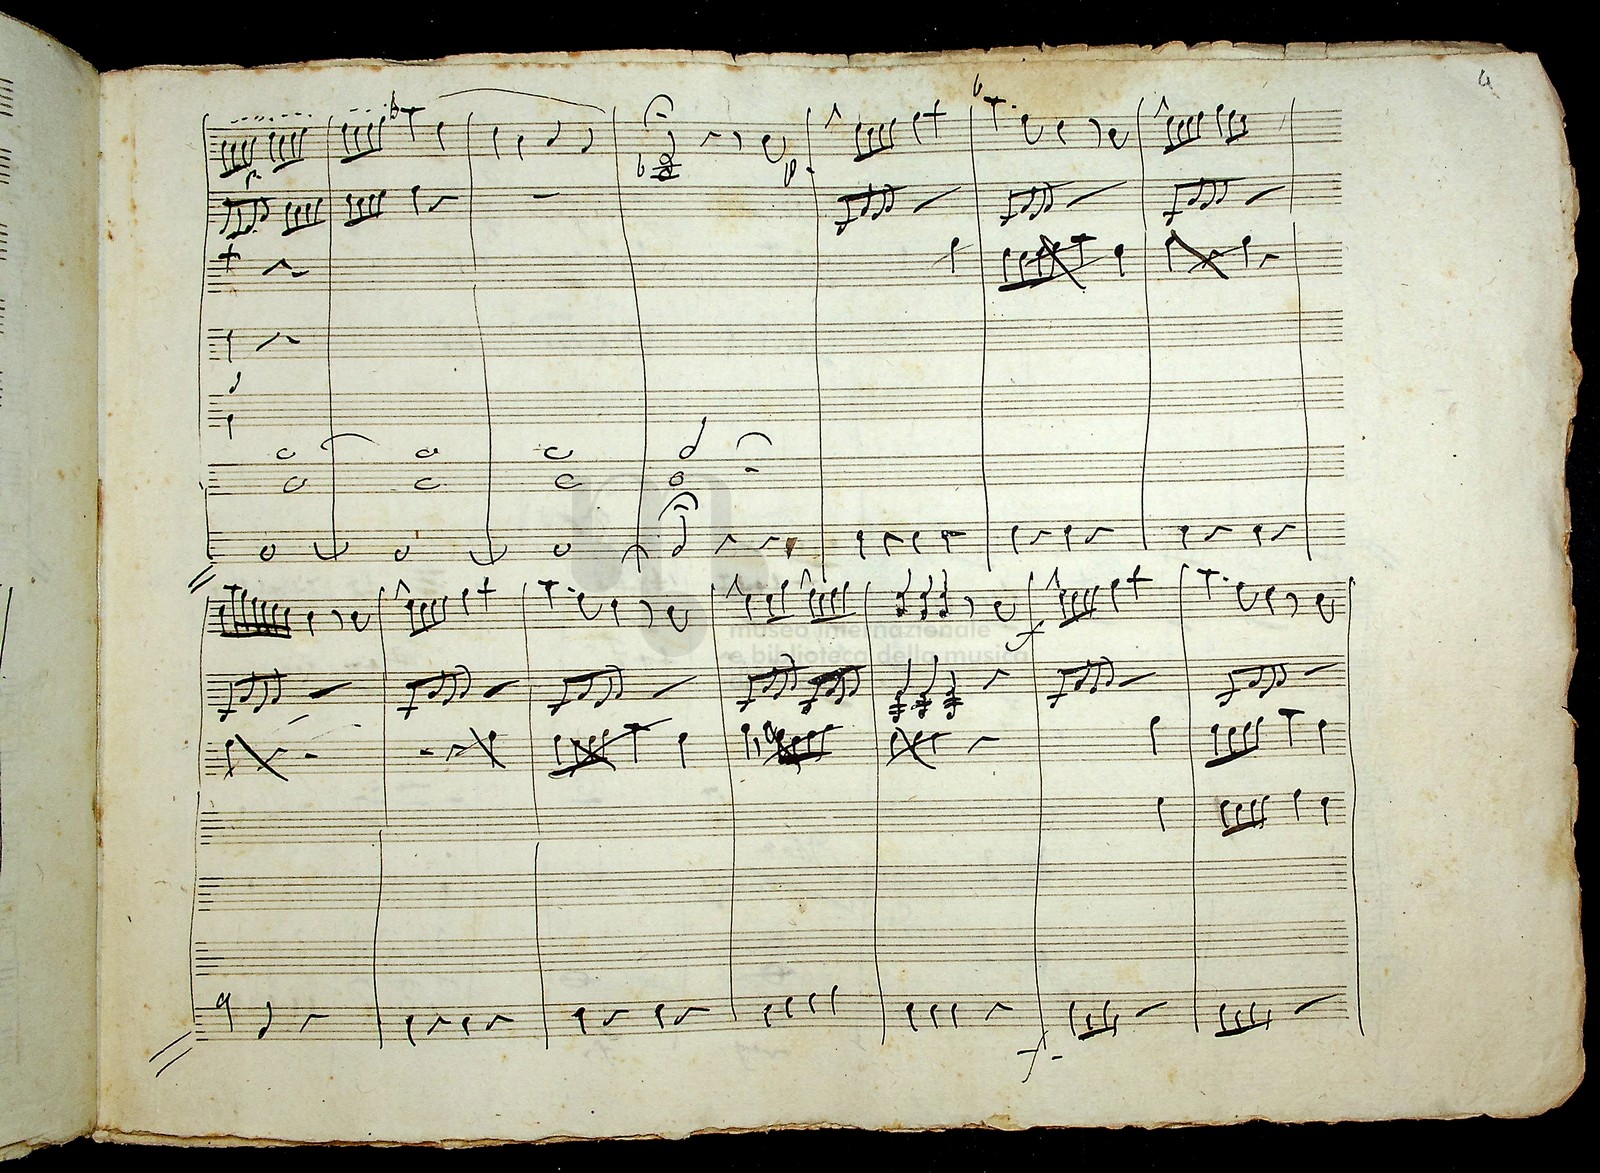 4
p
f
museo internazionale
e biblioteca della musica
f